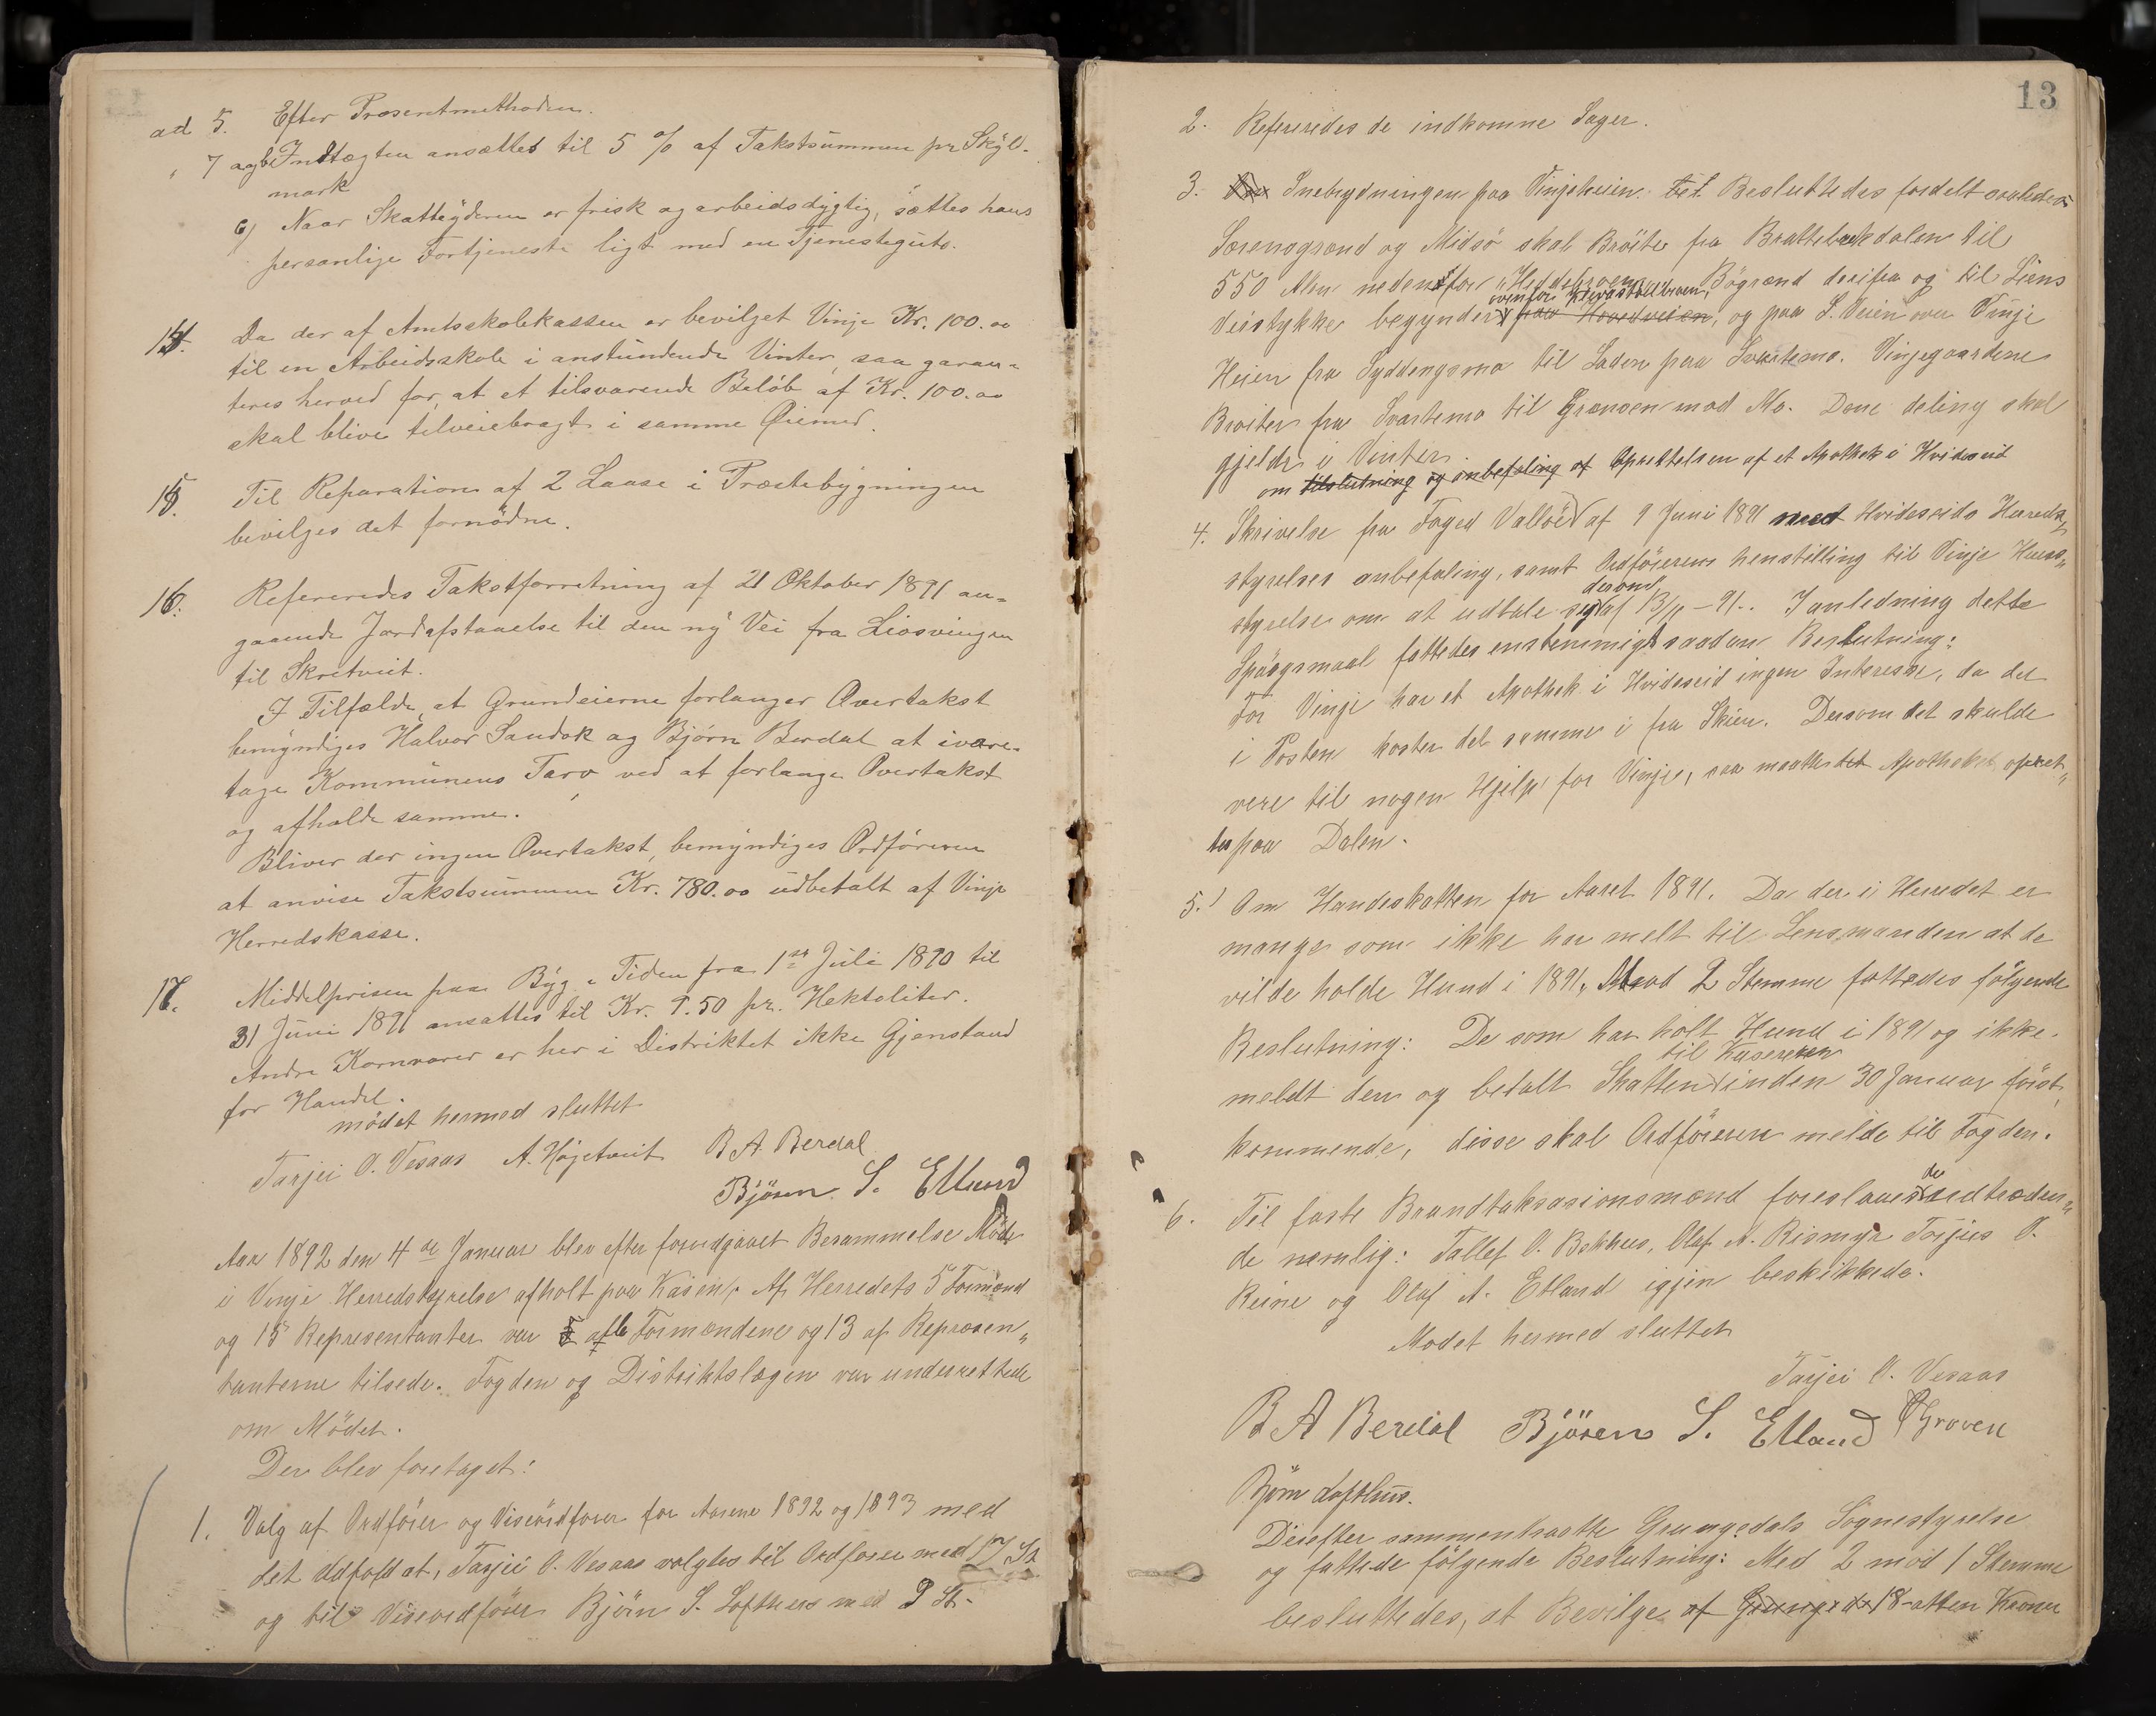 ad 5. Efter Prosentmethoden.
" 7 a og b Indtægten ansættes til 5 % af Takstsummen pr Skyld-
mark
c) Naar Skatteyderen er frisk og arbeidsdygtig, sættes hans
personlige Fortjeneste ligt med en Tjenestegut.
14. Da der af Amtsskolekassen er bevilget Vinje Kr. 100.00
til en Arbeidsskole i anstundende Vinter, saa garan-
teres herved for, at et tilsvarende Beløb af Kr. 100.00
skal blive tilveiebragt i samme Øiemed.
15. Til Reparation af 2 Laase i Præstebygningen
bevilges det fornödne.
16. Refereredes Takstforretning af 21 Oktober 1891 an-
gaaende Jordafstaaelse til den ny Vei fra Liosvingen
til Skretveit.
I Tilfælde, at Grundeierne forlanger Overtakst
bemyndiges Halvor Sandok og Bjørn Berdal at ivare-
tage Kommunens Tarv ved at forlange Overtakst
og afholde samme.
Bliver der ingen Overtakst, bemyndiges Ordføreren
at anvise Takstsummen Kr. 780.00 udbetalt af Vinje
Herredskasse.
17. Middelprisen paa Byg i Tiden fra 1ste Juli 1890 til
31 Juni 1891 ansattes til Kr. 9.50 pr. Hektoliter.
Andre Kornvarer er her i Distriktet ikke Gjenstand
for Handel.
mødet hermed sluttet
Tarjei O. Vesaas A. Högetveit B A. Berdal
Björen S. Etland
Aar 1892 den 4de Januar blev efter forudgaaet Berammelse Möde
i Vinje Herredstyrelse afholt paa Kasen. Af Herredets 5 Formænd
og 15 Representanter var 5 af Formændene og 13 af Repræsen"
tanterne tilsede. Fogden og Distriktslægen var underrettede
om Mödet.
Der blev foretaget:
1. Valg af Ordförer og Viseordförer for Aarene 1892 og 1893 med
det Udfald at, Tarjei O. Vesaas valgtes til Ordförer med 17 St
og til Viseordförer Björn S. Lofthus med 9 St.
13
2. Refereredes de indkomne Sager.
3. Snebrydningen paa Vinjeheien. Besluttedes fordelt saaledes
Særensgrænd og Midsö skal Bröite fra Brattebækdalen til
550 Alen nedenfor Heddebroen, Bögrænd derifra og til Liens
ovenfor
Veistykke begynder paa Hovedveien, og paa S. Veien over Vinje
Heien fra Syddengsmo til Laden paa Svartemo. Vinjegaardene
Broiter fra Svartemo til Grænsen mod Mo. Dene deling skal
gjelde i Vinter.
om tilslutning og anbefaling af Oprettelsen af et Apothek i Hvideseid
4. Skrivelse fra Foged Vallöe af 9 Juni 1891 med Hvideseids Hereds"
styrelses anbefaling, samt Ordförerens henstilling til Vinje Heres"
derom
styrelse om at udtale seg af - 91.. I anledning dette
Spörgsmaal fattedes enstemmigt saadan Beslutning:
For Vinje har et Apothek i Hvideseid ingen Interesse, da det
i Posten koster det samme i fra Skien. Dersom det skulde
vere til nogen Hjelp for Vinje, saa maatte det Apotheket opret"
tes paa Dalen.
5.) Om Hundeskatten for Aaret 1891. Da der i Herredet er
mange som ikke har melt til Lensmanden at de
vilde holde Hund i 1891, Mod 2 Stemme fattedes fölgende
Beslutning: De som har holt Hund i 1891 og ikke
til Kasereren
meldt den og betalt Skatten inden 30 Januar först
kommende, disse skal Ordföreren melde til Fogden.
6. Til faste Brandtaksasionsmænd foreslaaes de udtræden"
de nemlig: Tallef O. Bekhus, Olaf A. Rismyr Torjus O.
Reine og Olaf A. Etland igjen beskikkede.
Modet hermed sluttet
Tarjei O. Vesaas
B A Berdal Björen S. Etland Groven
Björn Lofthus.
Derefter sammentraatte Grungedals Sognestyrelse
og fattede fölgende Beslutning: Med 2 mod 1 Stemme
besluttedes, at Bevilge af 18-atten Kroner